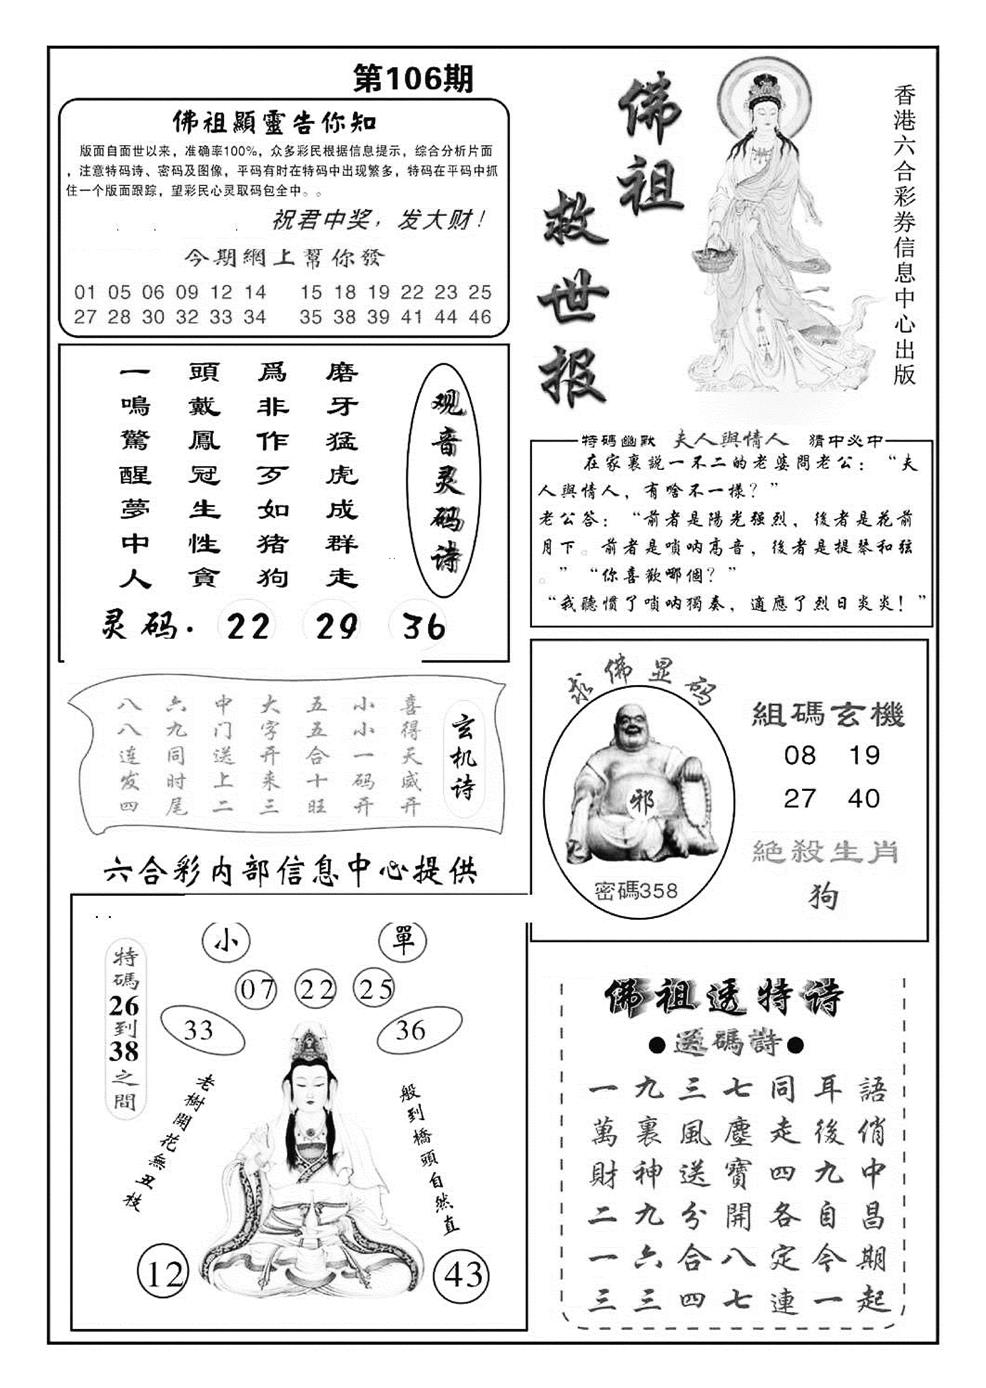 第106期
佛祖顯靈告你知
版面自面世以来，准确率100%，众多彩民根据信息提示，综合分析片面
，注意特码诗、密码及图像，平码有时在特码中出现繁多，特码在平码中抓
住一个版面跟踪，望彩民心灵取码包全中。。
祝君中奖，发大财！
今期網上幫你發
01 05 06 09 12 14 15 18 19 22 23 25
27 28 30 32 33 34 35 38 39 41 44 46
佛祖
救世报
香港六合彩券信息中心出版
观音灵码诗
磨牙猛虎成群走
爲非作歹如猪狗
頭戴鳳冠生性貪
一鳴驚醒夢中人
灵码. 22 29 36
特碼幽默 夫人與情人 猜中必中
在家裏説一不二的老婆問老公：“夫
人與情人，有啥不一樣？”
老公答：“前者是陽光强烈，後者是花前
月下。前者是嗩呐高音，後者是提琴和弦
。”“你喜歡哪個？”
“我聽慣了嗩呐獨奏，適應了烈日炎炎！”
玄机诗
喜得天威开
小小一码开
五五合十旺
大字开来三
中门送上二
六九同时尾
八八连发四
六合彩内部信息中心提供
求佛显码
邪
密碼358
組碼玄機
08 19
27 40
絕殺生肖
狗
小 單
07 22 25
33 36
特碼26到38之間
老樹開花無丑枝
般到橋頭自然直
12 43
佛祖透特诗
●送碼詩●
語俏中昌期起
耳後九自今一
同走四各定連
七塵寶開八七
三風送分合四
九裏神九六三
一萬財二一三